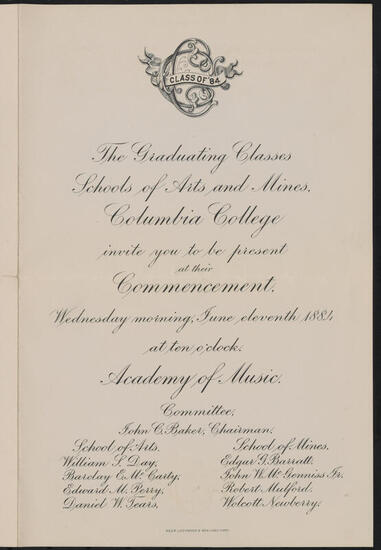 CLASS OF '84
The Graduating Classes
Schools of Arts and Mines,
Columbia College
invite you to be present
at their
Commencement,
Wednesday morning, June eleventh 1884
at ten o'clock.
Academy of Music.
Committee,
John C. Baker, Chairman.
School of Arts.
William S. Day,
Barclay E. Mc. Carty,
Edward M. Perry,
Daniel W. Tears,
School of Mines.
Edgar G. Barratt,
John W. Mc. Genniss Jr.
Robert Mulford,
Wolcott Newberry,